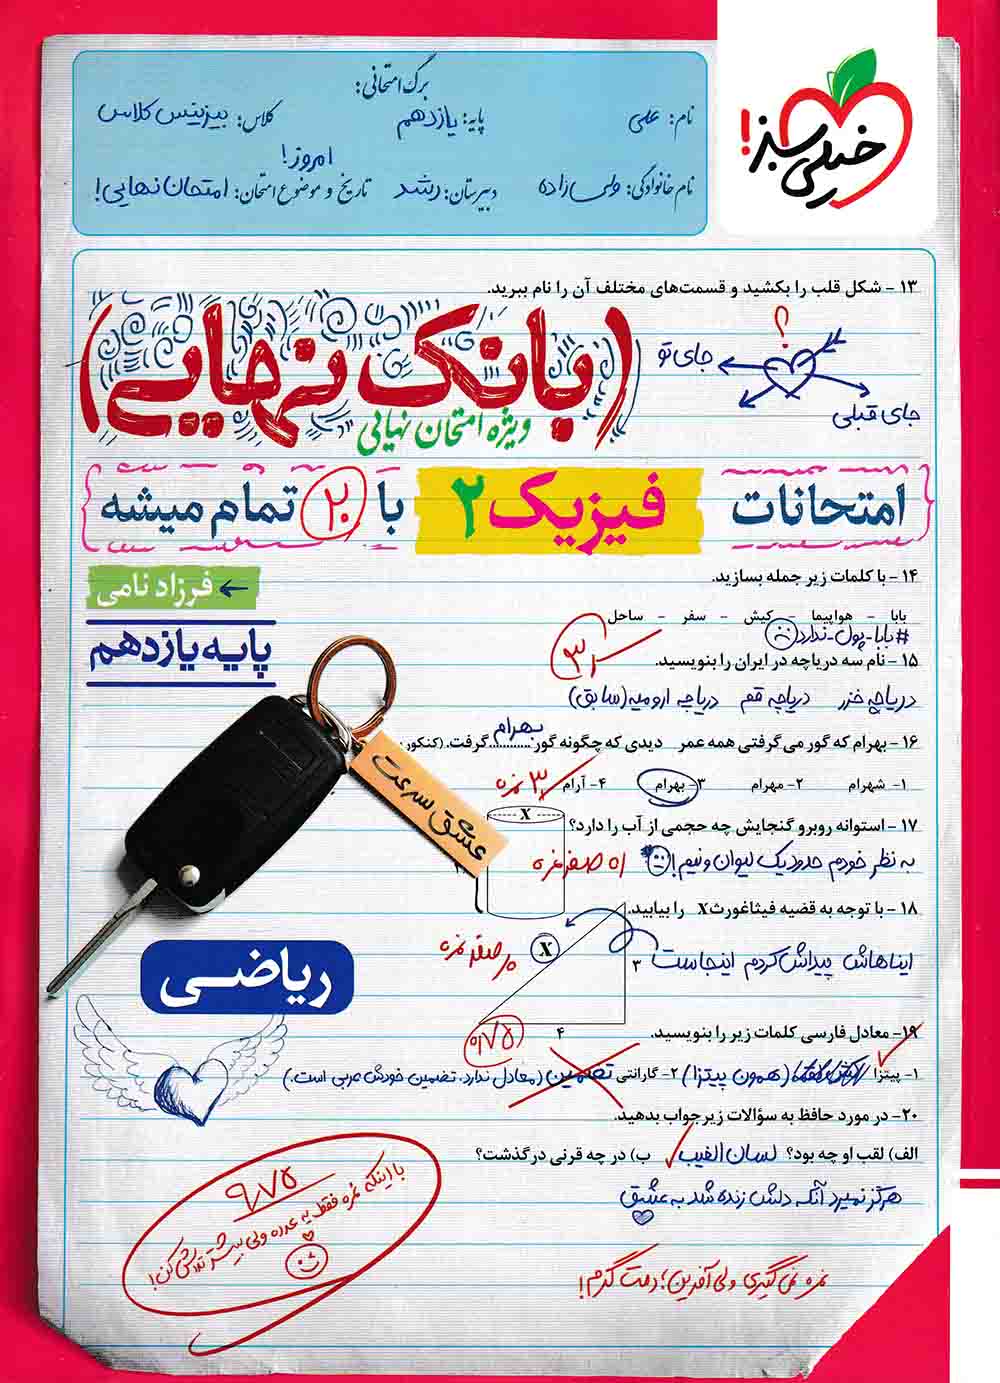 خیلی سبز!
برگ امتحانی:
نام: علی
پایه: یازدهم
کلاس: بیزینس کلاس
نام خانوادگی: ولی زاده
دبیرستان: رشد
تاریخ و موضوع امتحان: امتحان نهایی!
امروز!
۱۳ - شکل قلب را بکشید و قسمت‌های مختلف آن را نام ببرید.
؟
جای تو
جای قبلی
(بانک نهایی)
ویژه امتحان نهایی
امتحانات فیزیک ۲ با ۲۰ تمام میشه
فرزاد نامی
پایه یازدهم
۱۴ - با کلمات زیر جمله بسازید.
بابا - هواپیما - کیش - سفر - ساحل
#بابا-پول-ندارد
۱۵ - نام سه دریاچه در ایران را بنویسید.
دریاچه خزر دریاچه قم دریاچه ارومیه (سابق)
۱۶ - بهرام که گور می گرفتی همه عمر دیدی که چگونه گور بهرام گرفت. (کنکور
۱- شهرام ۲- مهرام ۳- بهرام ۴- آرام
عشق سرعت
۱۷ - استوانه روبرو گنجایش چه حجمی از آب را دارد؟
X
به نظر خودم حدود یک لیوان و نیم!
صفر نمره
۱۸ - با توجه به قضیه فیثاغورث X را بیابید.
X
ایناهاش پیداش کردم اینجاست
۳
۴
صفر نمره
ریاضی
۰/۷۵
۱۹- معادل فارسی کلمات زیر را بنویسید.
۱- پیتزا (همون پیتزا) ۲- گارانتی تضمین (معادل ندارد. تضمین خودش عربی است.)
۲۰- در مورد حافظ به سؤالات زیر جواب بدهید.
الف) لقب او چه بود؟ لسان الغیب ب) در چه قرنی درگذشت؟
هرگز نمیرد آنکه دلش زنده شد به عشق
۹/۷۵
با اینکه نمره فقط یه عدده ولی بیشتر تلاش کن!
نمره نمی گیری ولی آفرین؛ دمت گرم!